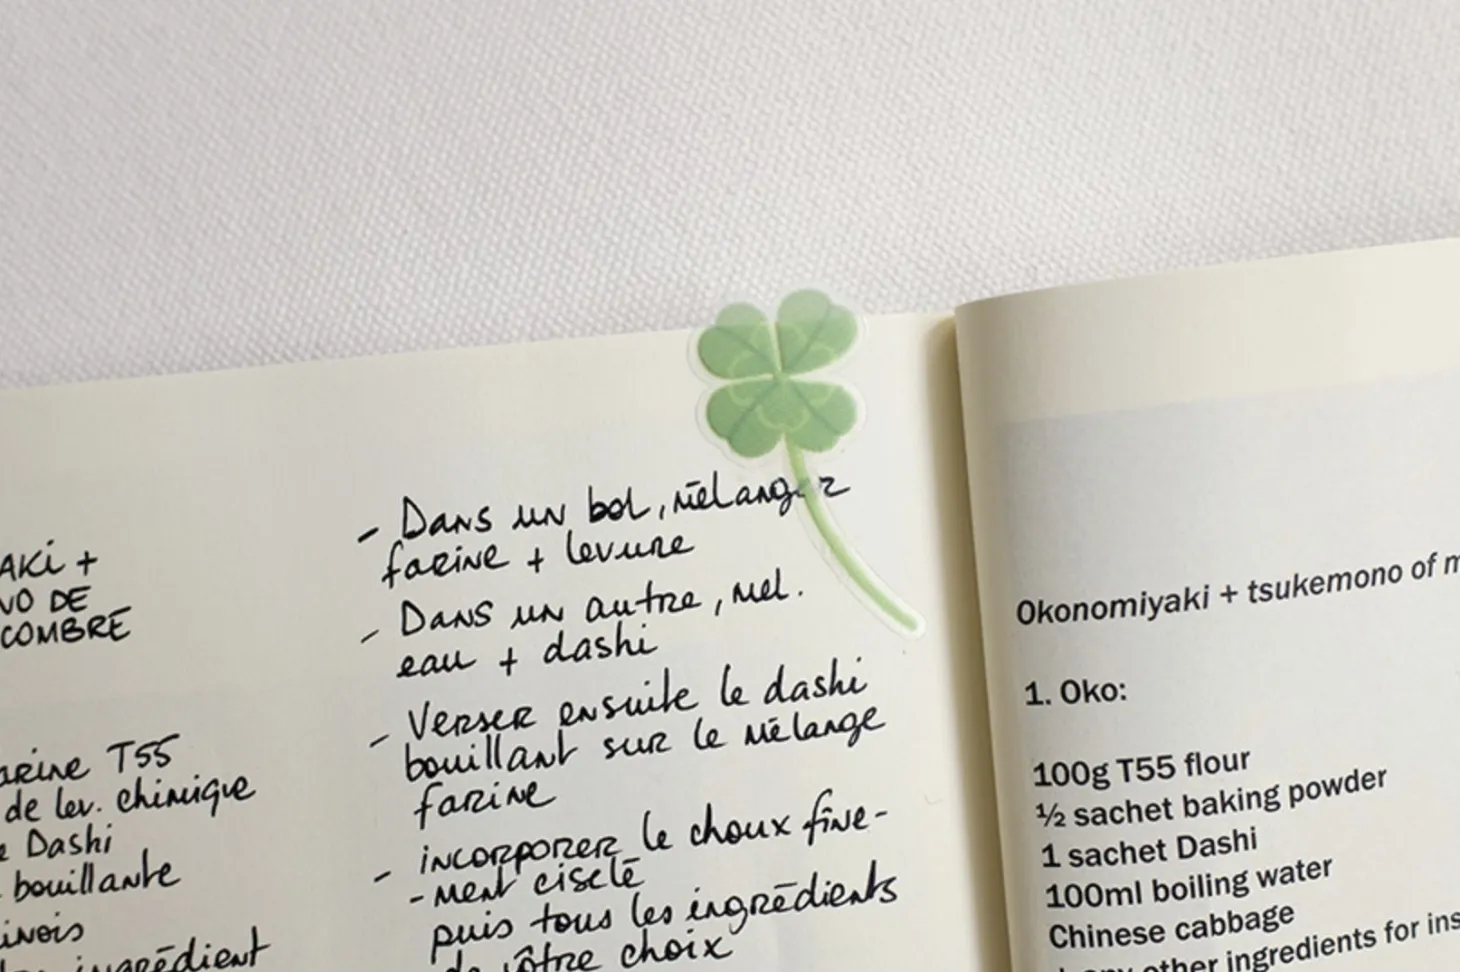 AKI +
NO DE
COMBRE
arine T55
de lev. chimique
Dashi
bouillante
inois
ingrédient
- Dans un bol, mélanger
farine + levure
- Dans un autre, mel.
eau + dashi
- Verser ensuite le dashi
bouillant sur le mélange
farine
- incorporer le choux fine-
-ment ciselé
puis tous les ingrédients
de vôtre choix
Okonomiyaki + tsukemono of m
1. Oko:
100g T55 flour
½ sachet baking powder
1 sachet Dashi
100ml boiling water
Chinese cabbage
any other ingredients for ins